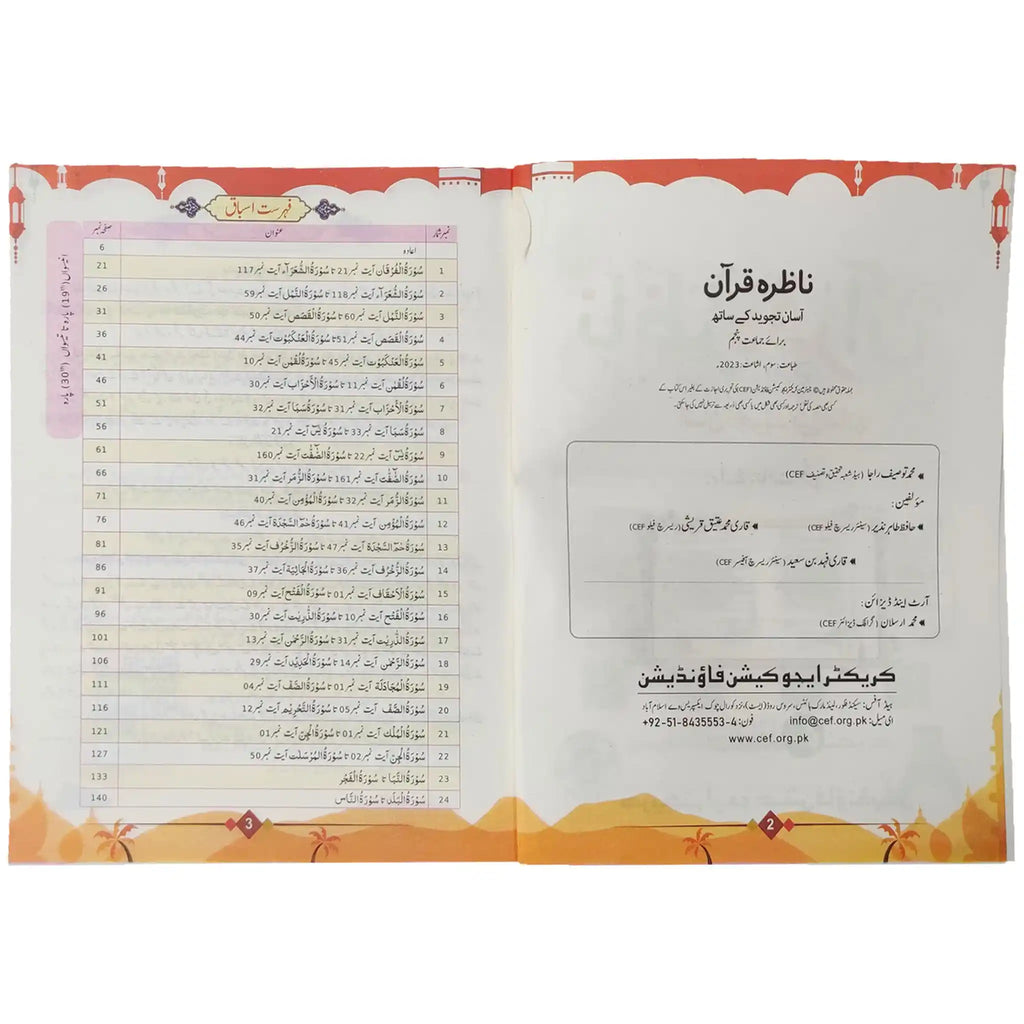 ناظرہ قرآن
آسان تجوید کے ساتھ
برائے جماعت پنجم
طباعت: سوم، اشاعت: 2023ء
جملہ حقوق محفوظ ہیں © چیئرمین کریکٹر ایجوکیشن فاؤنڈیشن (CEF) کی تحریری اجازت کے بغیر اس کتاب کے
کسی بھی حصہ کی نقل، ترجمہ اور کسی بھی شکل میں یا کسی بھی ذریعہ سے ترسیل نہیں کی جا سکتی۔
محمد توصیف راجا (ہیڈ شعبہ تحقیق و تصنیف CEF)
مؤلفین:
حافظ طاہر نذیر (سینئر ریسرچ فیلو CEF) قاری محمد عتیق قریشی (ریسرچ فیلو CEF)
قاری فہد بن سعید (سینئر ریسرچ آفیسر CEF)
آرٹ اینڈ ڈیزائن:
محمد ارسلان (گرافک ڈیزائنر CEF)
کریکٹر ایجوکیشن فاؤنڈیشن
ہیڈ آفس: سیکنڈ فلور، لینڈ مارک ہائٹس، سروس روڈ (ایسٹ)، نزد کورال چوک ایکسپریس وے اسلام آباد
ای میل: info@cef.org.pk فون: +92-51-8435553-4
www.cef.org.pk
2
فہرست اسباق
نمبر شمار عنوان صفحہ نمبر
اعادہ 6
1 سُوْرَةُالْفُرْقَان آیت نمبر 21 تا سُوْرَةُالشُّعَرَآء آیت نمبر 117 21
2 سُوْرَةُالشُّعَرَآء آیت نمبر 118 تا سُوْرَةُالنَّمْل آیت نمبر 59 26
3 سُوْرَةُالنَّمْل آیت نمبر 60 تا سُوْرَةُالْقَصَص آیت نمبر 50 31
4 سُوْرَةُالْقَصَص آیت نمبر 51 تا سُوْرَةُالْعَنْكَبُوْت آیت نمبر 44 36
5 سُوْرَةُالْعَنْكَبُوْت آیت نمبر 45 تا سُوْرَةُلُقْمٰن آیت نمبر 10 41
6 سُوْرَةُلُقْمٰن آیت نمبر 11 تا سُوْرَةُالْاَحْزَاب آیت نمبر 30 46
7 سُوْرَةُالْاَحْزَاب آیت نمبر 31 تا سُوْرَةُسَبَا آیت نمبر 32 51
8 سُوْرَةُسَبَا آیت نمبر 33 تا سُوْرَةُ يٰسٓ آیت نمبر 21 56
9 سُوْرَةُ يٰسٓ آیت نمبر 22 تا سُوْرَةُالصّٰٓفّٰت آیت نمبر 160 61
10 سُوْرَةُالصّٰٓفّٰت آیت نمبر 161 تا سُوْرَةُالزُّمَر آیت نمبر 31 66
11 سُوْرَةُالزُّمَر آیت نمبر 32 تا سُوْرَةُالْمُؤْمِن آیت نمبر 40 71
12 سُوْرَةُالْمُؤْمِن آیت نمبر 41 تا سُوْرَةُ حٰمٓ السَّجْدَة آیت نمبر 46 76
13 سُوْرَةُ حٰمٓ السَّجْدَة آیت نمبر 47 تا سُوْرَةُالزُّخْرُف آیت نمبر 35 81
14 سُوْرَةُالزُّخْرُف آیت نمبر 36 تا سُوْرَةُالْجَاثِيَة آیت نمبر 37 86
15 سُوْرَةُالْاَحْقَاف آیت نمبر 01 تا سُوْرَةُالْفَتْح آیت نمبر 09 91
16 سُوْرَةُالْفَتْح آیت نمبر 10 تا سُوْرَةُالذّٰرِيٰت آیت نمبر 30 96
17 سُوْرَةُالذّٰرِيٰت آیت نمبر 31 تا سُوْرَةُالرَّحْمٰن آیت نمبر 13 101
18 سُوْرَةُالرَّحْمٰن آیت نمبر 14 تا سُوْرَةُالْحَدِيْد آیت نمبر 29 106
19 سُوْرَةُالْمُجَادَلَة آیت نمبر 01 تا سُوْرَةُالصَّفّ آیت نمبر 04 111
20 سُوْرَةُالصَّفّ آیت نمبر 05 تا سُوْرَةُالتَّحْرِيْم آیت نمبر 12 116
21 سُوْرَةُالْمُلْك آیت نمبر 01 تا سُوْرَةُالْجِنّ آیت نمبر 01 121
22 سُوْرَةُالْجِنّ آیت نمبر 02 تا سُوْرَةُالْمُرْسَلٰت آیت نمبر 50 127
23 سُوْرَةُالنَّبَا تا سُوْرَةُالْفَجْر 133
24 سُوْرَةُالْبَلَد تا سُوْرَةُالنَّاس 140
انیسواں (19th) پارہ تا تیسواں (30th) پارہ
3